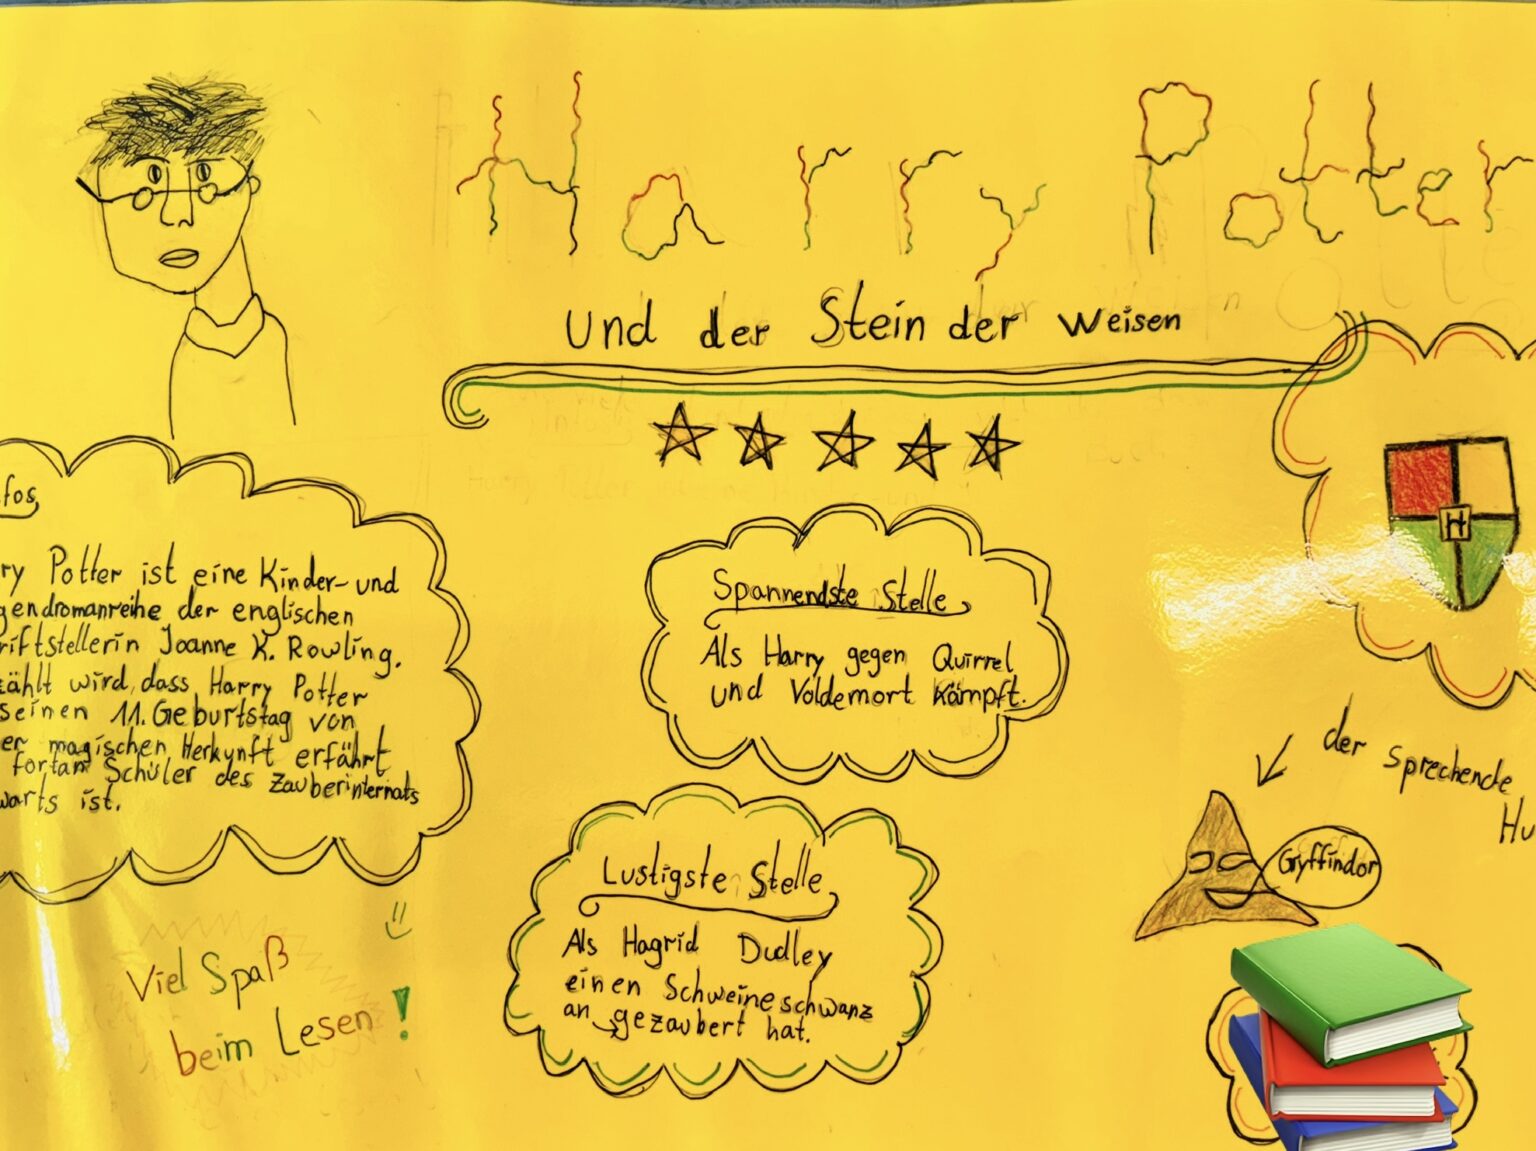 Harry Potter
und der Stein der Weisen
fos
ry Potter ist eine Kinder- und
gendromanreihe der englischen
riftstellerin Joanne K. Rowling.
zählt wird, dass Harry Potter
seinen 11. Geburtstag von
er magischen Herkunft erfährt
fortan Schüler des Zauberinternats
warts ist.
Viel Spaß
beim Lesen!
Spannendste Stelle
Als Harry gegen Quirrel
und Voldemort kämpft.
Lustigste Stelle
Als Hagrid Dudley
einen Schweineschwanz
an gezaubert hat.
H
der sprechende
Hu
Gryffindor